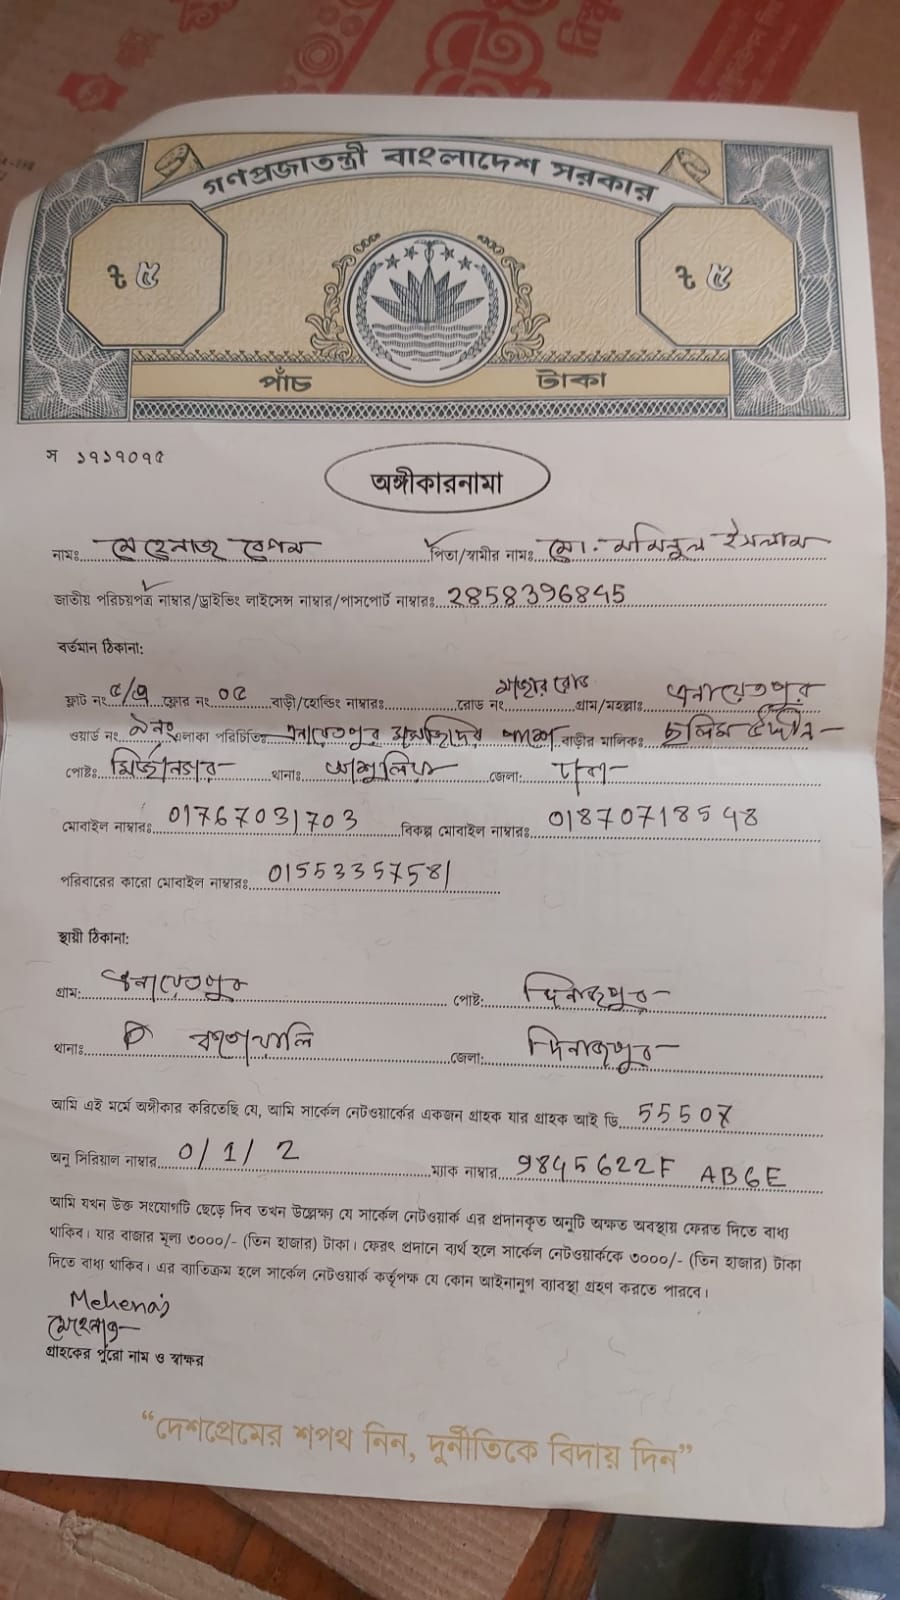 গণপ্রজাতন্ত্রী বাংলাদেশ সরকার
৳ ৫ ৳ ৫
পাঁচ টাকা
স ১৭১৭০৭৫
অঙ্গীকারনামা
নামঃ মেহেনাজ বেগম পিতা/স্বামীর নামঃ মো. মমিনুল ইসলাম
জাতীয় পরিচয়পত্র নাম্বার/ড্রাইভিং লাইসেন্স নাম্বার/পাসপোর্ট নাম্বারঃ 2858396845
বর্তমান ঠিকানা:
ফ্লাট নং ৫/এ ফ্লোর নং ০৫ বাড়ী/হোল্ডিং নাম্বারঃ রোড নং রোড গ্রাম/মহল্লাঃ এনায়েতপুর
ওয়ার্ড নং ৯নং এলাকা পরিচিতিঃ এনায়েতপুর মসজিদের পাশে বাড়ীর মালিকঃ ছলিম উদ্দীন
পোষ্টঃ মির্জানগর থানাঃ আশুলিয়া জেলাঃ ঢাকা
মোবাইল নাম্বারঃ 01767031703 বিকল্প মোবাইল নাম্বারঃ 01870718548
পরিবারের কারো মোবাইল নাম্বারঃ 01553357581
স্থায়ী ঠিকানা:
গ্রাম: এনায়েতপুর পোষ্ট: দিনাজপুর
থানাঃ জেলা: দিনাজপুর
আমি এই মর্মে অঙ্গীকার করিতেছি যে, আমি সার্কেল নেটওয়ার্কের একজন গ্রাহক যার গ্রাহক আই ডি 55507
অনু সিরিয়াল নাম্বার 0/1/2 ম্যাক নাম্বার 9845622F AB6E
আমি যখন উক্ত সংযোগটি ছেড়ে দিব তখন উল্লেক্ষ্য যে সার্কেল নেটওয়ার্ক এর প্রদানকৃত অনুটি অক্ষত অবস্থায় ফেরত দিতে বাধ্য
থাকিব। যার বাজার মূল্য ৩০০০/- (তিন হাজার) টাকা। ফেরৎ প্রদানে ব্যর্থ হলে সার্কেল নেটওয়ার্ককে ৩০০০/- (তিন হাজার) টাকা
দিতে বাধ্য থাকিব। এর ব্যতিক্রম হলে সার্কেল নেটওয়ার্ক কর্তৃপক্ষ যে কোন আইনানুগ ব্যাবস্থা গ্রহণ করতে পারবে।
Mehenaj
মেহেনাজ
গ্রাহকের পুরো নাম ও স্বাক্ষর
“দেশপ্রেমের শপথ নিন, দুর্নীতিকে বিদায় দিন”